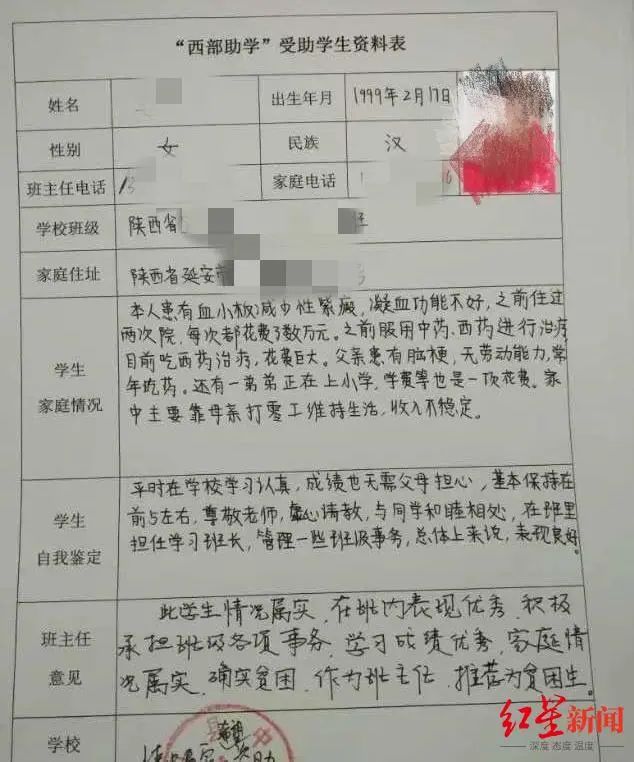 “西部助学”受助学生资料表
姓名 出生年月 1999年2月17日
性别 女 民族 汉
班主任电话 家庭电话
学校班级 陕西省 班
家庭住址 陕西省延安市
学生
家庭情况
本人患有血小板减少性紫癜，凝血功能不好，之前住过
两次院，每次都花费了数万元。之前服用中药、西药进行治疗
目前吃西药治疗，花费巨大。父亲患有脑梗，无劳动能力，常
年吃药。还有一弟弟正在上小学，学费等也是一项花费。家
中主要靠母亲打零工维持生活，收入不稳定。
学生
自我鉴定
平时在学校学习认真，成绩也无需父母担心，基本保持在
前5左右，尊敬老师，虚心请教，与同学和睦相处，在班里
担任学习班长，管理一些班级事务，总体上来说，表现良好。
班主任
意见
此学生情况属实，在班内表现优秀，积极
承担班级各项事务，学习成绩优秀，家庭情
况属实，确实贫困，作为班主任，推荐为贫困生。
学校
县
助
红星新闻
深度 态度 温度